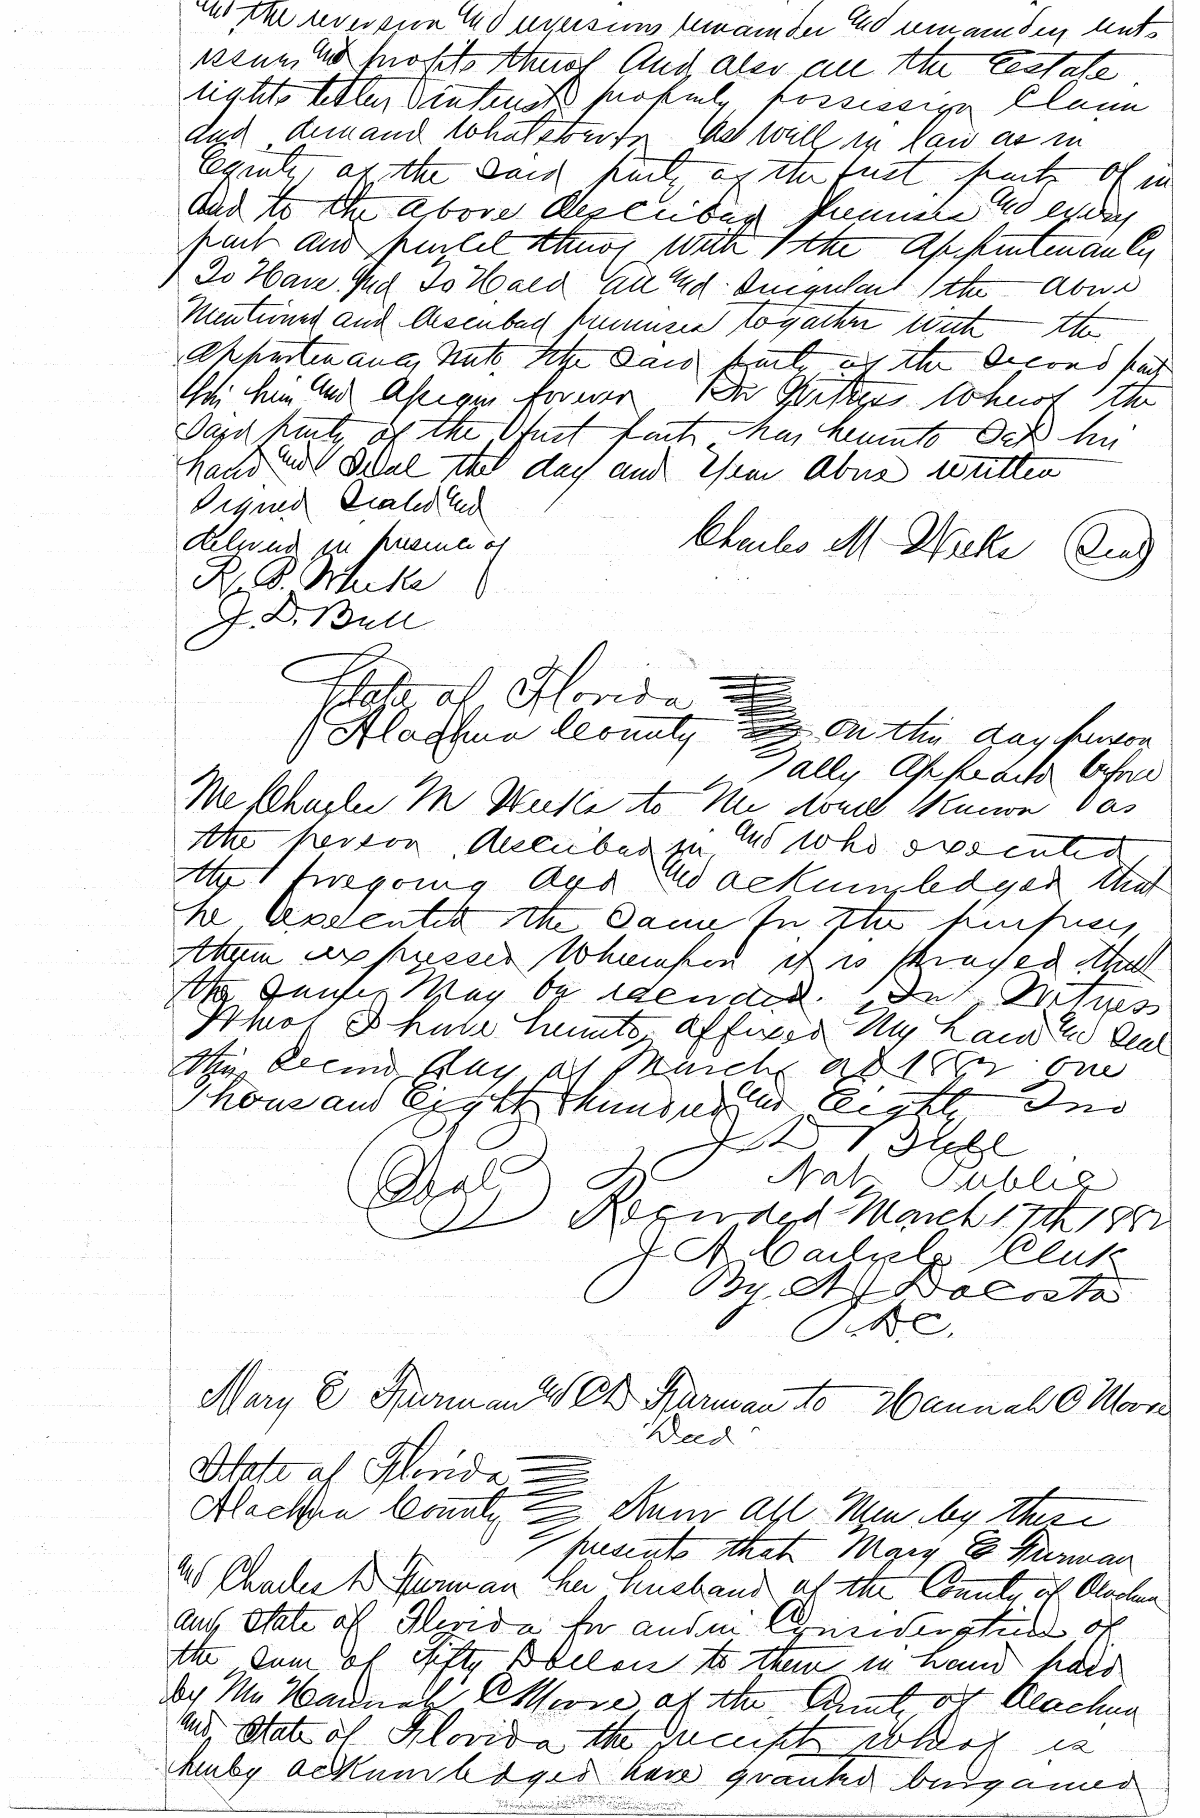 and the reversion and reversions remainder and remainders rents
issues and profits thereof And also all the Eestate
rights titles interest property possession Claim
and demand Whatsoever As well in law as in
Equity of the Said party of the first part Of in
And to the Above described premises and every
part and parcel thereof with the Appurtenances
To Have And To Hold All and Singular the above
Mentioned and described premises together with the
Appurtenances Unto the Said party of the Second part
his and Assigns forever In Witness Whereof the
Said party of the first part has hereunto Set his
hand and Seal the day and Year Above written
Signed Sealed and
delivered in presence of
Charles M Weeks Seal
R. B. Weeks
J. D. Bull
State of Florida
Alachua County On this day person
ally Appeared before
Me Charles M Weeks to Me well Known as
the person described in and who executed
the foregoing and acknowledged that
he executed the Same for the purposes
therein expressed Whereupon it is prayed that
the Same May be recorded. In Witness
Whereof I have hereunto affixed My hand and Seal
this Second day of March ad 1882 one
Thousand Eight Hundred and Eighty Two
J D Bull
Seal
Not Public
Recorded March 17th 1882
J A Carlisle Clerk
By A J DaCosta
D.C.
Mary E Furman and C D Furman to Hannah C Moore
Deed
State of Florida
Alachua County Know All Men by these
presents that Mary E Furman
and Charles D Furman her husband of the County of Alachua
and State of Florida for and in Consideration of
the Sum of Fifty Dollars to them in hand paid
by Mrs Hannah C Moore of the County of Alachua
and State of Florida the receipt whereof is
hereby acknowledged have granted bargained